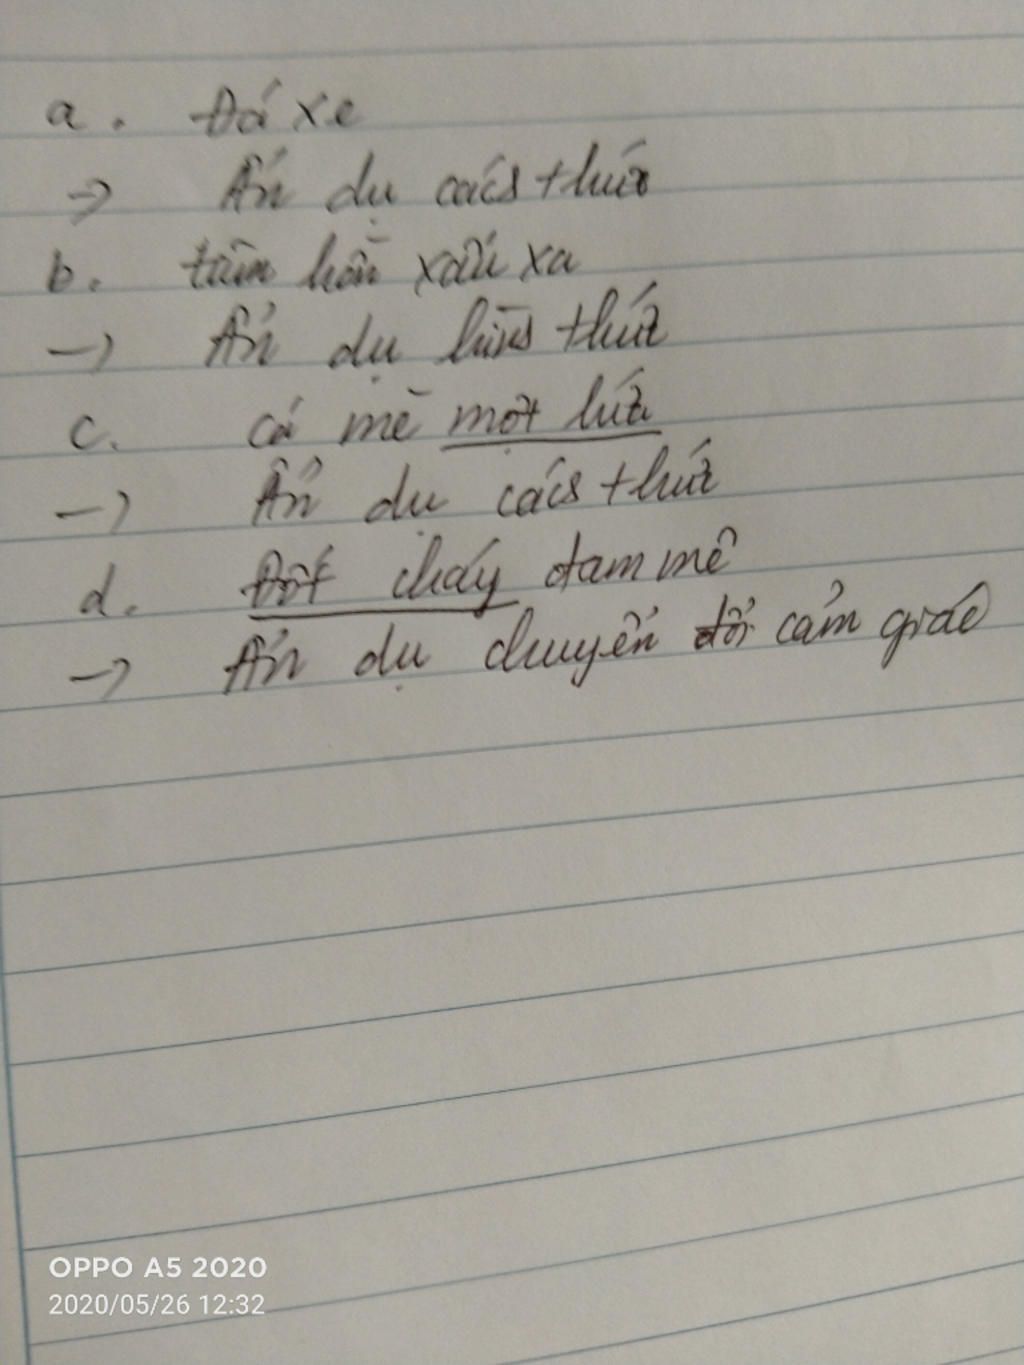 a. Đá xe
→ Ẩn dụ cách thức
b. tâm hồn xấu xa
→ Ẩn dụ hình thức
c. cá mè một lứa
→ Ẩn dụ cách thức
d. Đốt cháy đam mê
→ Ẩn dụ chuyển đổi cảm giác
OPPO A5 2020
2020/05/26 12:32